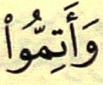 وَأَتِمُّوا۟